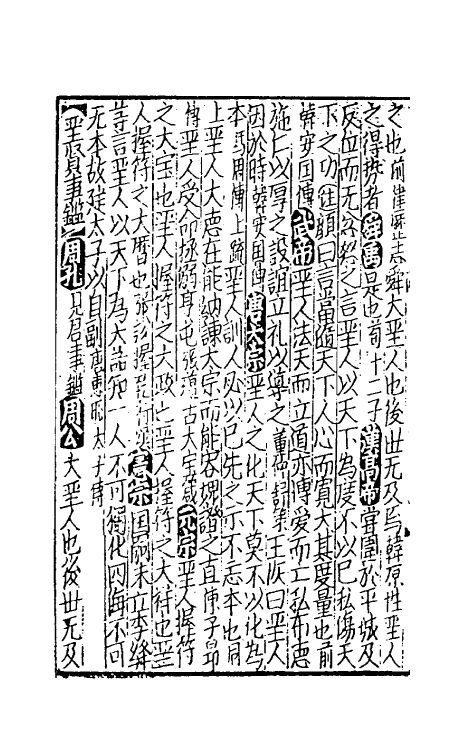 之也前崔寔志舜大聖人也後世无及焉韓原性聖人
之得勢者舜禹是也荀十二子漢高帝嘗圍於平城及
反位而无忿怒之言聖人以天下為度不以己私傷天
下之功注顔曰言當隨天下人心而寬大其度量也前
韓安國傳武帝聖人法天而立道亦博愛而亡私布德
施仁以厚之設誼立礼以導之董仲舒策王恢曰聖人
因於時韓安國傳唐太宗聖人之化天下莫不以化為
本馬周傳上疏聖人訓人必以己先之示不忘本也同
上聖人大德在能納諫太宗而能容魏之直陳子昂
傳聖人受命拯溺亨屯張藴古大宝箴玄宗聖人握符
之大宝也聖人握符之大政也聖人握符之大祥也聖
人握符之大曆也張説握乾符憲宗國嗣未立李絳
等言聖人以天下為大器知一人不可獨化四海不可
无本故建太子以自副唐惠昭太子傳
聖賢事鑑周孔見君事鑑周公大聖人也後世无及